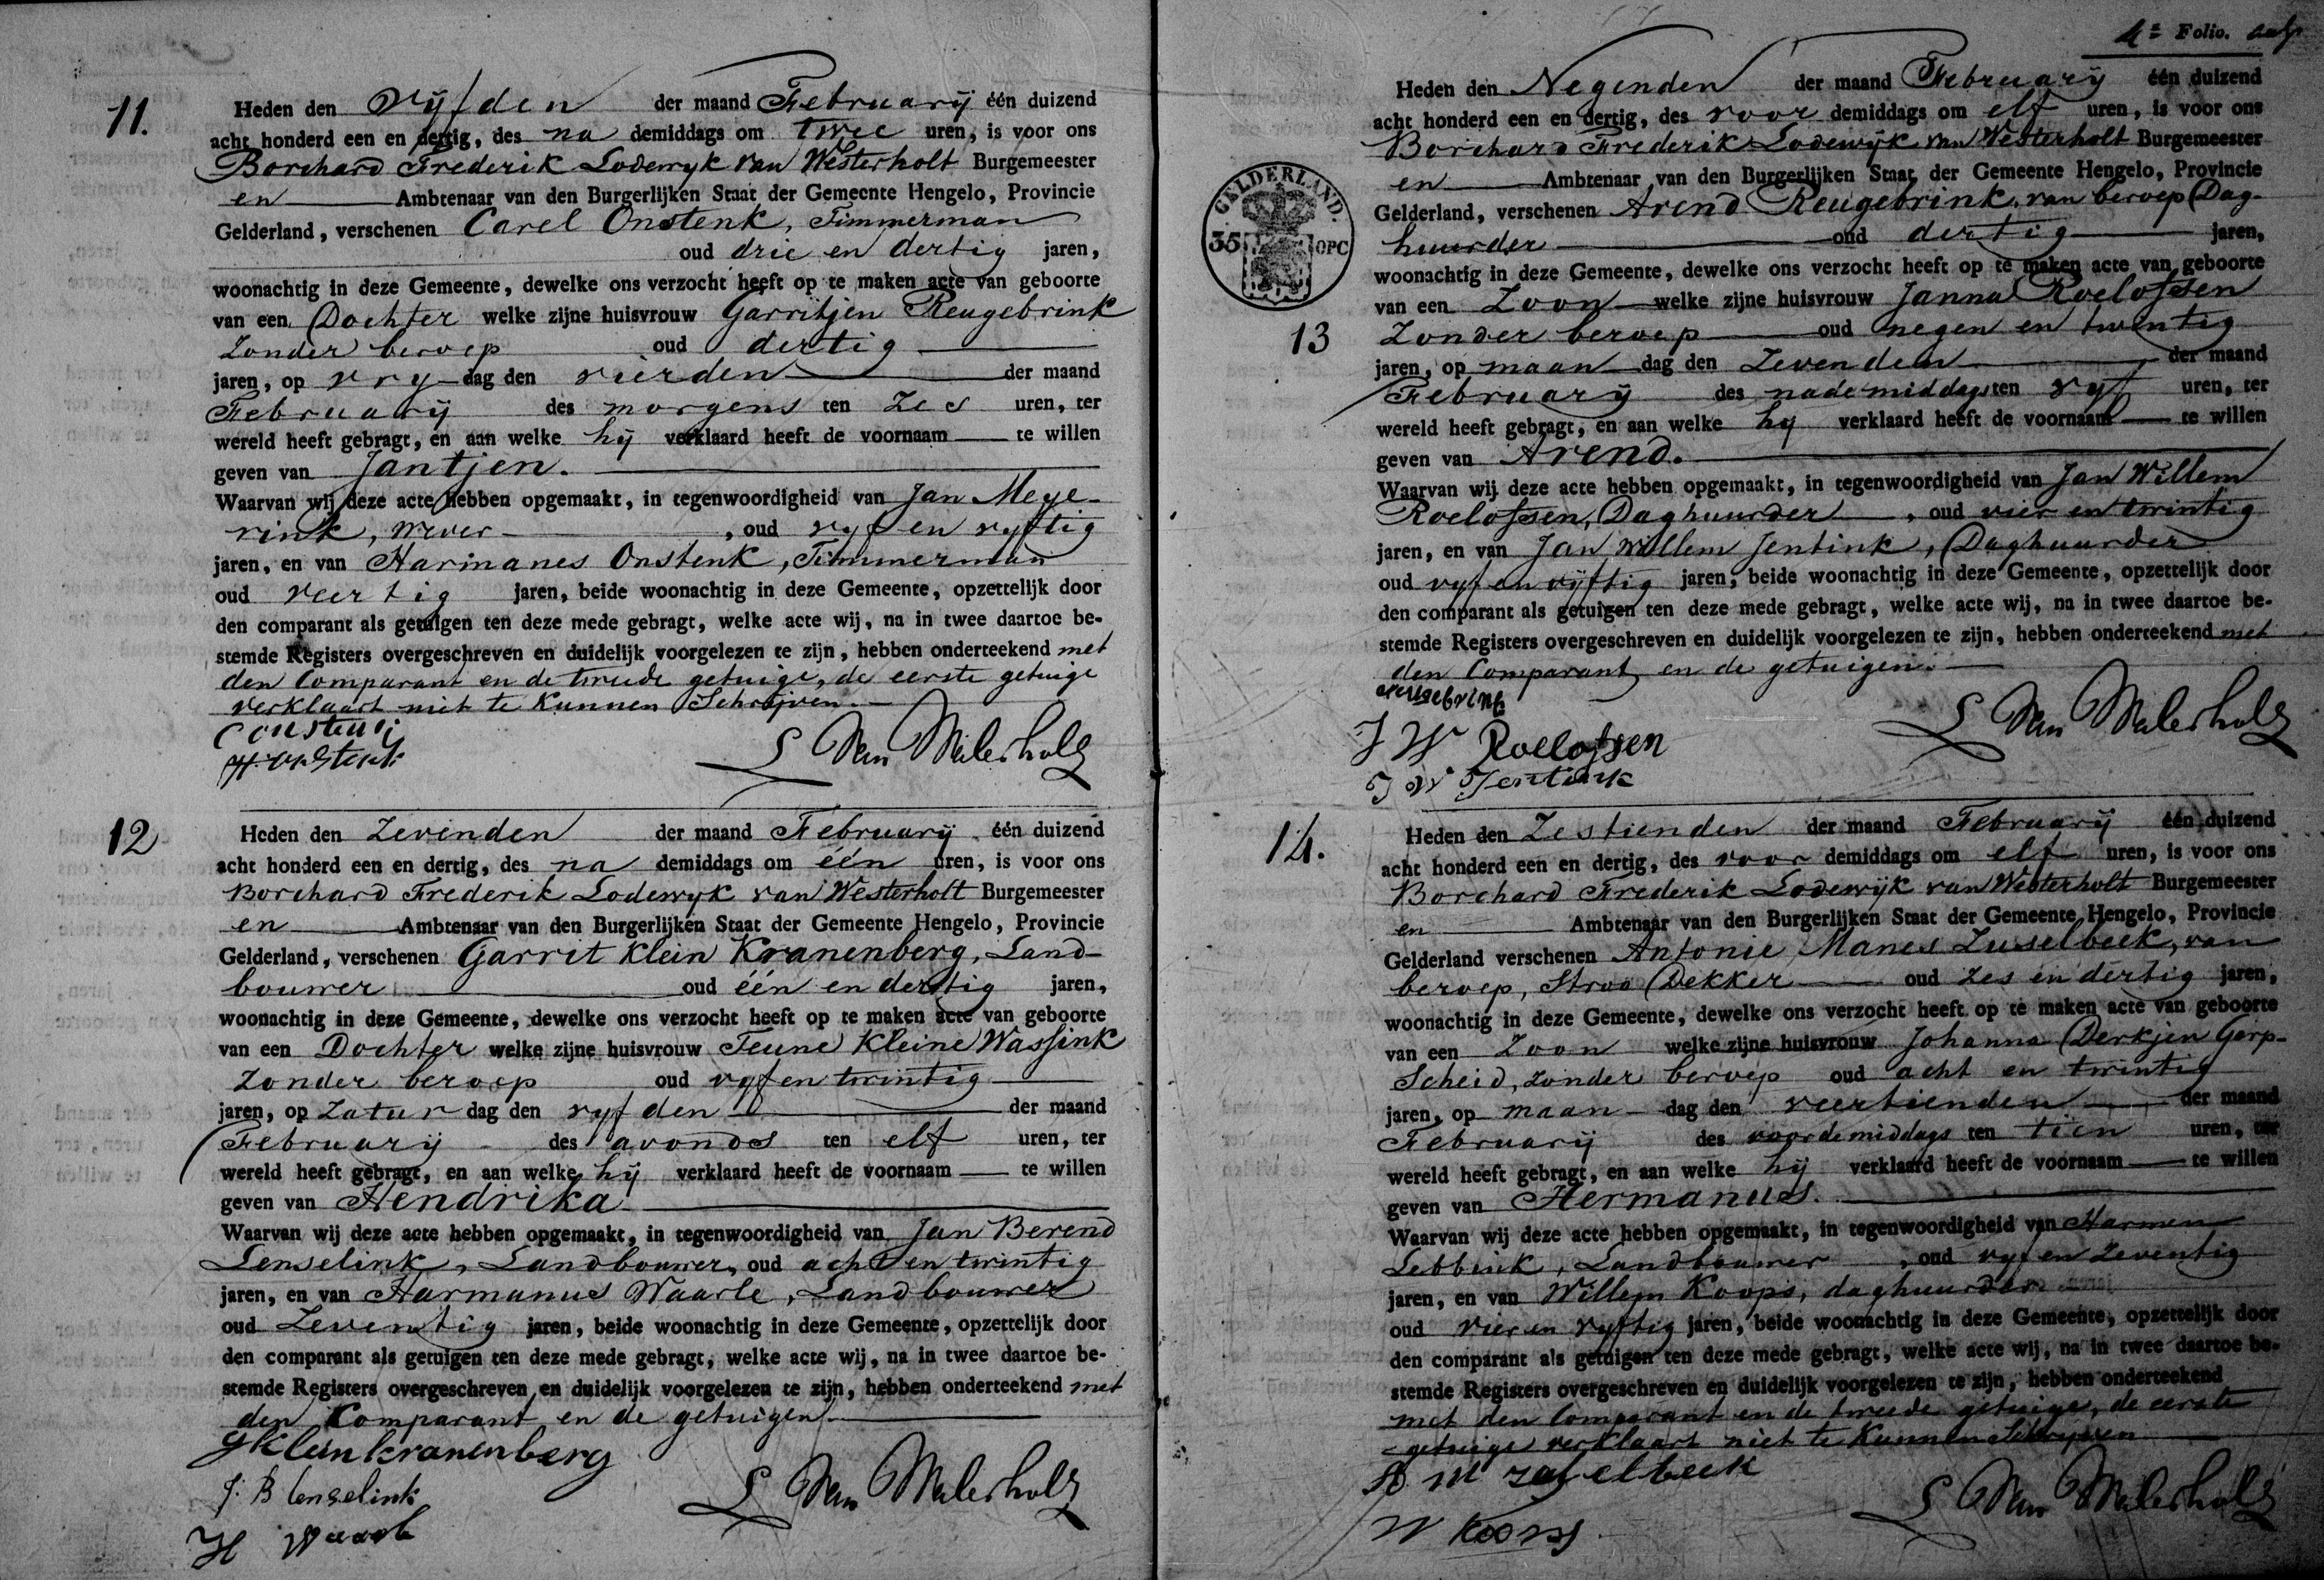 11.
Heden den Vijfden der maand Februarij één duizend
acht honderd een en dertig, des na demiddags om twee uren, is voor ons
Borchard Frederik Lodewyk van Westerholt Burgemeester
en Ambtenaar van den Burgerlijken Staat der Gemeente Hengelo, Provincie
Gelderland, verschenen Carel Onstenk, Timmerman
oud drie en dertig jaren,
woonachtig in deze Gemeente, dewelke ons verzocht heeft op te maken acte van geboorte
van een Dochter welke zijne huisvrouw Garritjen Reugebrink
Zonder beroep oud dertig
jaren, op vry dag den vierden der maand
Februarij des morgens ten zes uren, ter
wereld heeft gebragt, en aan welke hij verklaard heeft de voornaam te willen
geven van Jantjen.
Waarvan wij deze acte hebben opgemaakt, in tegenwoordigheid van Jan Meye-
rink, Wever, oud vyf en vyftig
jaren, en van Harmanes Onstenk, Timmerman
oud veertig jaren, beide woonachtig in deze Gemeente, opzettelijk door
den comparant als getuigen ten deze mede gebragt, welke acte wij, na in twee daartoe be-
stemde Registers overgeschreven en duidelijk voorgelezen te zijn, hebben onderteekend met
den Comparant en de tweede getuige, de eerste getuige
verklaart niet te kunnen Schrijven.
H. Onstenk
van Westerholt
12
Heden den Zevenden der maand Februarij één duizend
acht honderd een en dertig, des na demiddags om één uren, is voor ons
Borchard Frederik Lodewyk van Westerholt Burgemeester
en Ambtenaar van den Burgerlijken Staat der Gemeente Hengelo, Provincie
Gelderland, verschenen Garrit Klein Kranenberg, Land-
bouwer oud één en dertig jaren,
woonachtig in deze Gemeente, dewelke ons verzocht heeft op te maken acte van geboorte
van een Dochter welke zijne huisvrouw Teune Kleine Wassink
Zonder beroep oud vyf en twintig
jaren, op Zatur dag den vyfden der maand
Februarij des avonds ten elf uren, ter
wereld heeft gebragt, en aan welke hij verklaard heeft de voornaam te willen
geven van Hendrika
Waarvan wij deze acte hebben opgemaakt, in tegenwoordigheid van Jan Berend
Lenselink, Landbouwer, oud acht en twintig
jaren, en van Harmanus Waarle, Landbouwer
oud Zeventig jaren, beide woonachtig in deze Gemeente, opzettelijk door
den comparant als getuigen ten deze mede gebragt, welke acte wij, na in twee daartoe be-
stemde Registers overgeschreven en duidelijk voorgelezen te zijn, hebben onderteekend met
den Comparant en de getuigen.
G Klein kranenberg
J. B lenselink
H Waarle
van Westerholt
4e Folio.
Heden den Negenden der maand Februarij één duizend
acht honderd een en dertig, des voor demiddags om elf uren, is voor ons
Borchard Frederik Lodewijk van Westerholt Burgemeester
en Ambtenaar van den Burgerlijken Staat der Gemeente Hengelo, Provincie
Gelderland, verschenen Arend Reugebrink, van beroep Dag-
huurder oud dertig jaren,
woonachtig in deze Gemeente, dewelke ons verzocht heeft op te maken acte van geboorte
GELDERLAND.
35 OPC
13
van een Zoon welke zijne huisvrouw Janna Roelofsen
Zonder beroep oud negen en twintig
jaren, op maan dag den Zevenden der maand
Februarij des nademiddags ten vyf uren, ter
wereld heeft gebragt, en aan welke hij verklaard heeft de voornaam te willen
geven van Arend.
Waarvan wij deze acte hebben opgemaakt, in tegenwoordigheid van Jan Willem
Roelofsen, Daghuurder, oud vier en twintig
jaren, en van Jan Willem Jentink, Daghuurder
oud vyf en vijftig jaren, beide woonachtig in deze Gemeente, opzettelijk door
den comparant als getuigen ten deze mede gebragt, welke acte wij, na in twee daartoe be-
stemde Registers overgeschreven en duidelijk voorgelezen te zijn, hebben onderteekend met
den Comparant en de getuigen.
J W Roelofsen
J W Jentink
van Westerholt
14.
Heden den Zestienden der maand Februarij één duizend
acht honderd een en dertig, des voor demiddags om elf uren, is voor ons
Borchard Frederik Lodewijk van Westerholt Burgemeester
en Ambtenaar van den Burgerlijken Staat der Gemeente Hengelo, Provincie
Gelderland verschenen Antonie Manes Zuselbeek, van
beroep, Stroo Dekker oud zes en dertig jaren,
woonachtig in deze Gemeente, dewelke ons verzocht heeft op te maken acte van geboorte
van een Zoon welke zijne huisvrouw Johanna Derkjen Gorp-
Scheid, zonder beroep oud acht en twintig
jaren, op maan dag den veertienden der maand
Februarij des voordemiddags ten tien uren, ter
wereld heeft gebragt, en aan welke hij verklaard heeft de voornaam te willen
geven van Hermanus.
Waarvan wij deze acte hebben opgemaakt, in tegenwoordigheid van Harmen
Lebbink, Landbouwer, oud vyf en Zeventig
jaren, en van Willem Koops, daghuurder
oud vier en vyftig jaren, beide woonachtig in deze Gemeente, opzettelijk door
den comparant als getuigen ten deze mede gebragt, welke acte wij, na in twee daartoe be-
stemde Registers overgeschreven en duidelijk voorgelezen te zijn, hebben onderteekend
met den Comparant en de tweede getuige, de eerste
getuige verklaart niet te kunnen Schrijven
A M zuselbeek
W Koops
van Westerholt